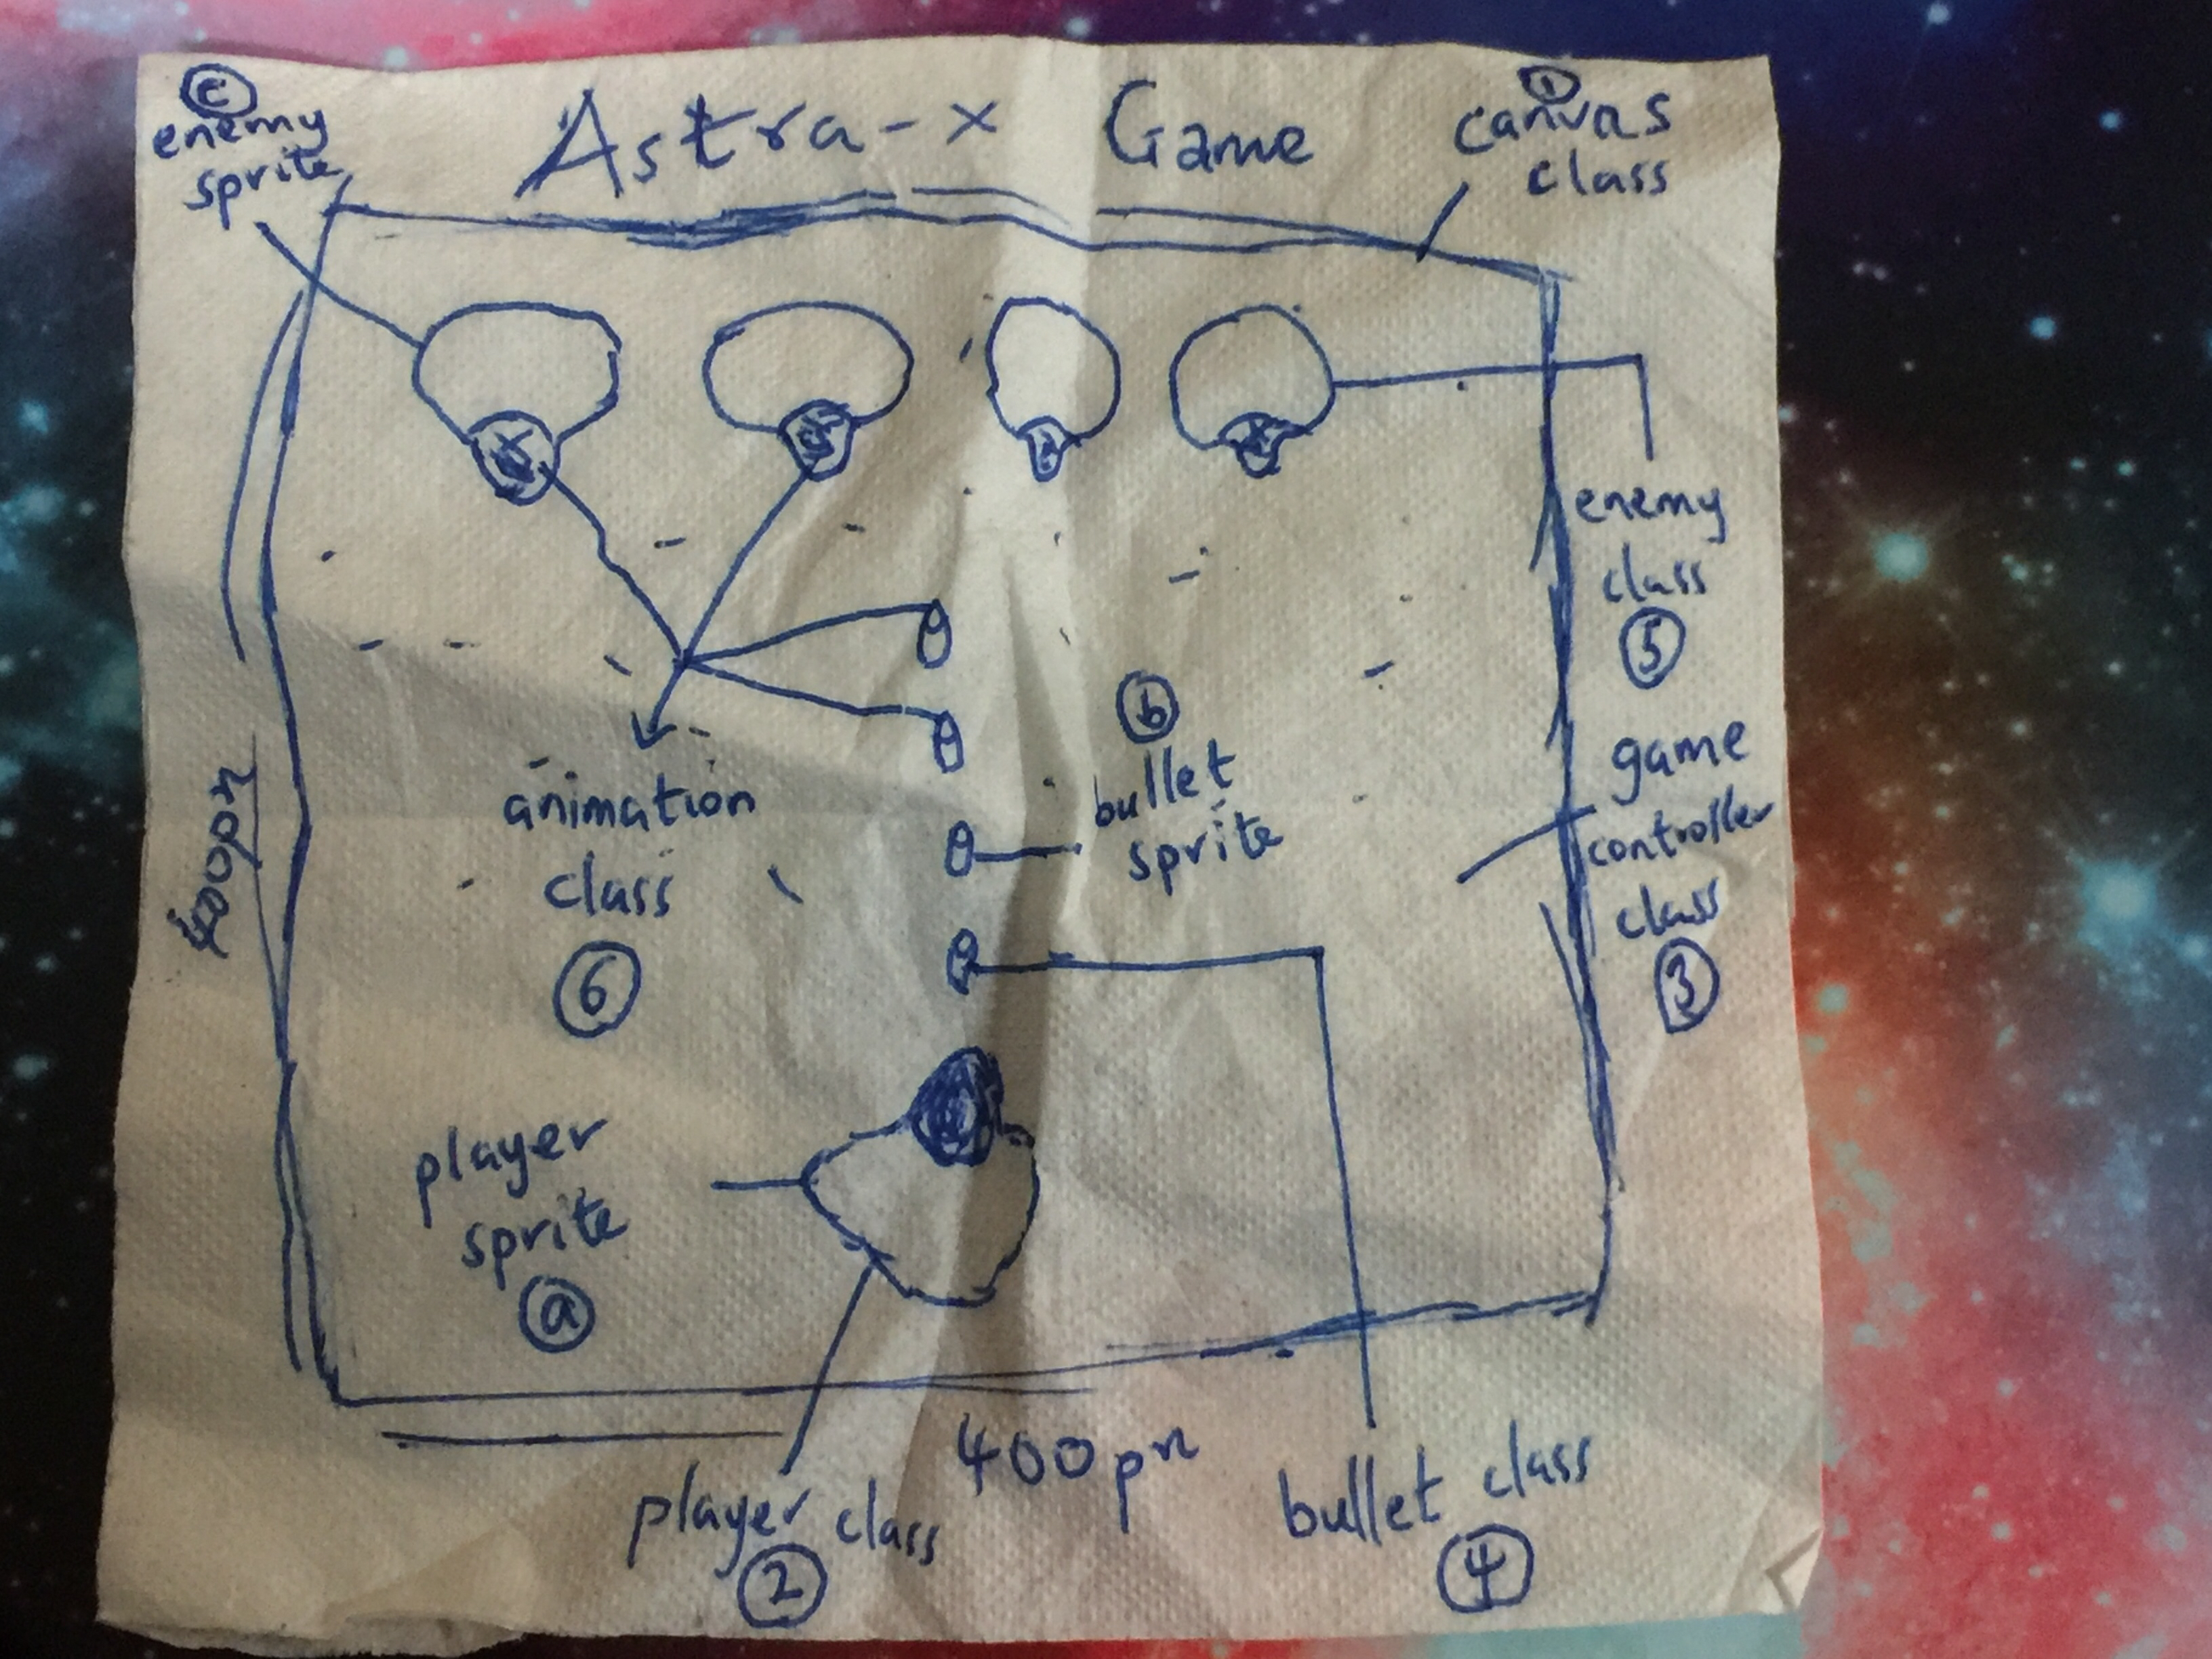 c
enemy
sprite
Astra-x Game
1
canvas
class
enemy
class
5
b
bullet
sprite
game
controller
class
3
400px
animation
class
6
player
sprite
a
400px
player class
2
bullet class
4